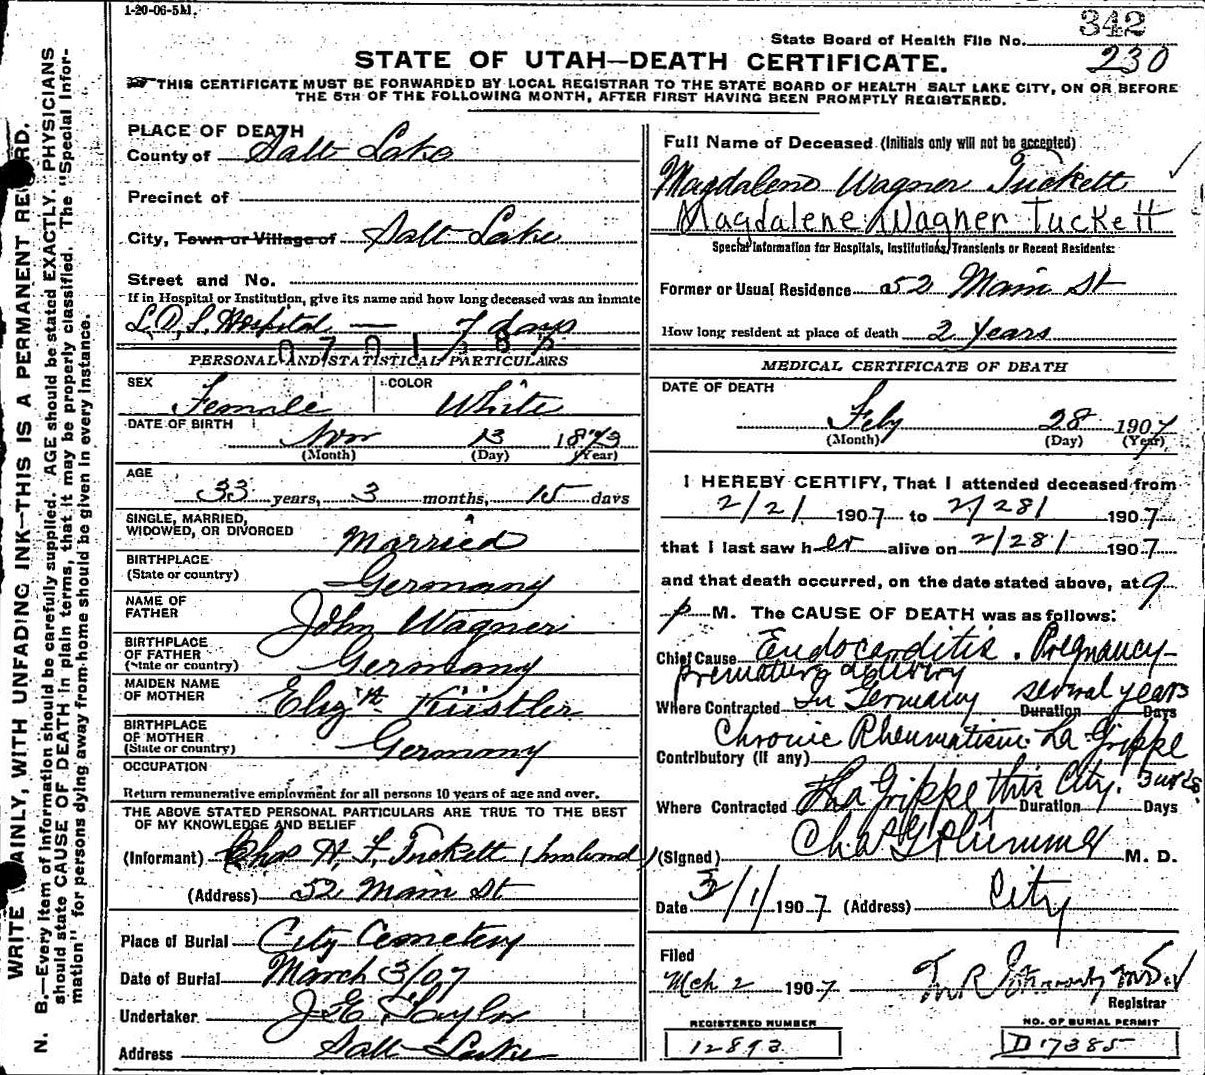 1-20-06-5M.
342
State Board of Health File No.
230
STATE OF UTAH—DEATH CERTIFICATE.
THIS CERTIFICATE MUST BE FORWARDED BY LOCAL REGISTRAR TO THE STATE BOARD OF HEALTH SALT LAKE CITY, ON OR BEFORE
THE 5TH OF THE FOLLOWING MONTH, AFTER FIRST HAVING BEEN PROMPTLY REGISTERED.
WRITE PLAINLY, WITH UNFADING INK—THIS IS A PERMANENT RECORD.
N. B.—Every item of information should be carefully supplied. AGE should be stated EXACTLY. PHYSICIANS
should state CAUSE OF DEATH in plain terms, that it may be properly classified. The "Special Infor-
mation" for persons dying away from home should be given in every instance.
PLACE OF DEATH
County of Salt Lake
Precinct of
City, Town or Village of Salt Lake
Street and No.
If in Hospital or Institution, give its name and how long deceased was an inmate
L.D.S. Hospital — 7 days
PERSONAL AND STATISTICAL PARTICULARS
SEX Female COLOR White
DATE OF BIRTH Nov 13 1873
(Month) (Day) (Year)
AGE
33 years, 3 months, 15 days
SINGLE, MARRIED,
WIDOWED, OR DIVORCED Married
BIRTHPLACE
(State or country) Germany
NAME OF
FATHER John Wagner
BIRTHPLACE
OF FATHER
(State or country) Germany
MAIDEN NAME
OF MOTHER Elizth Küstler
BIRTHPLACE
OF MOTHER
(State or country) Germany
OCCUPATION
Return remunerative employment for all persons 10 years of age and over.
THE ABOVE STATED PERSONAL PARTICULARS ARE TRUE TO THE BEST
OF MY KNOWLEDGE AND BELIEF
(Informant) Chas H. S. Tuckett (husband)
(Address) 52 Main St
Place of Burial City Cemetery
Date of Burial March 3/07
Undertaker. J.E. Taylor
Address Salt Lake
Full Name of Deceased (Initials only will not be accepted)
Magdalene Wagner Tuckett
Magdalene Wagner Tuckett
Special Information for Hospitals, Institutions, Transients or Recent Residents:
Former or Usual Residence 52 Main St
How long resident at place of death 2 Years
MEDICAL CERTIFICATE OF DEATH
DATE OF DEATH
Feby 28 1907
(Month) (Day) (Year)
I HEREBY CERTIFY, That I attended deceased from
2/21 1907 to 2/28/ 1907
that I last saw her alive on 2/28/ 1907
and that death occurred, on the date stated above, at 9
p M. The CAUSE OF DEATH was as follows:
Chief Cause Endocarditis. Pregnancy—
premature delivery
Where Contracted In Germany several years Duration Days
Chronic Rheumatism La Grippe
Contributory (if any)
Where Contracted La Grippe this City. Duration Days
(Signed) Chas G Plummer M. D.
Date 3/1/ 1907 (Address) City
Filed
Mch 2 1907
Registrar
REGISTERED NUMBER
12893
NO. OF BURIAL PERMIT
D 17385